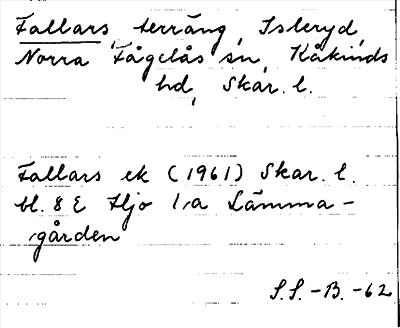 Fallars, terräng, Isleryd,
Norra Fågelås sn, Kåkinds
hd, Skar. l.
Fallars ek (1961) Skar. l.
bl. 8 E Hjo l,a Lämma-
gården
S.S.-B.-62